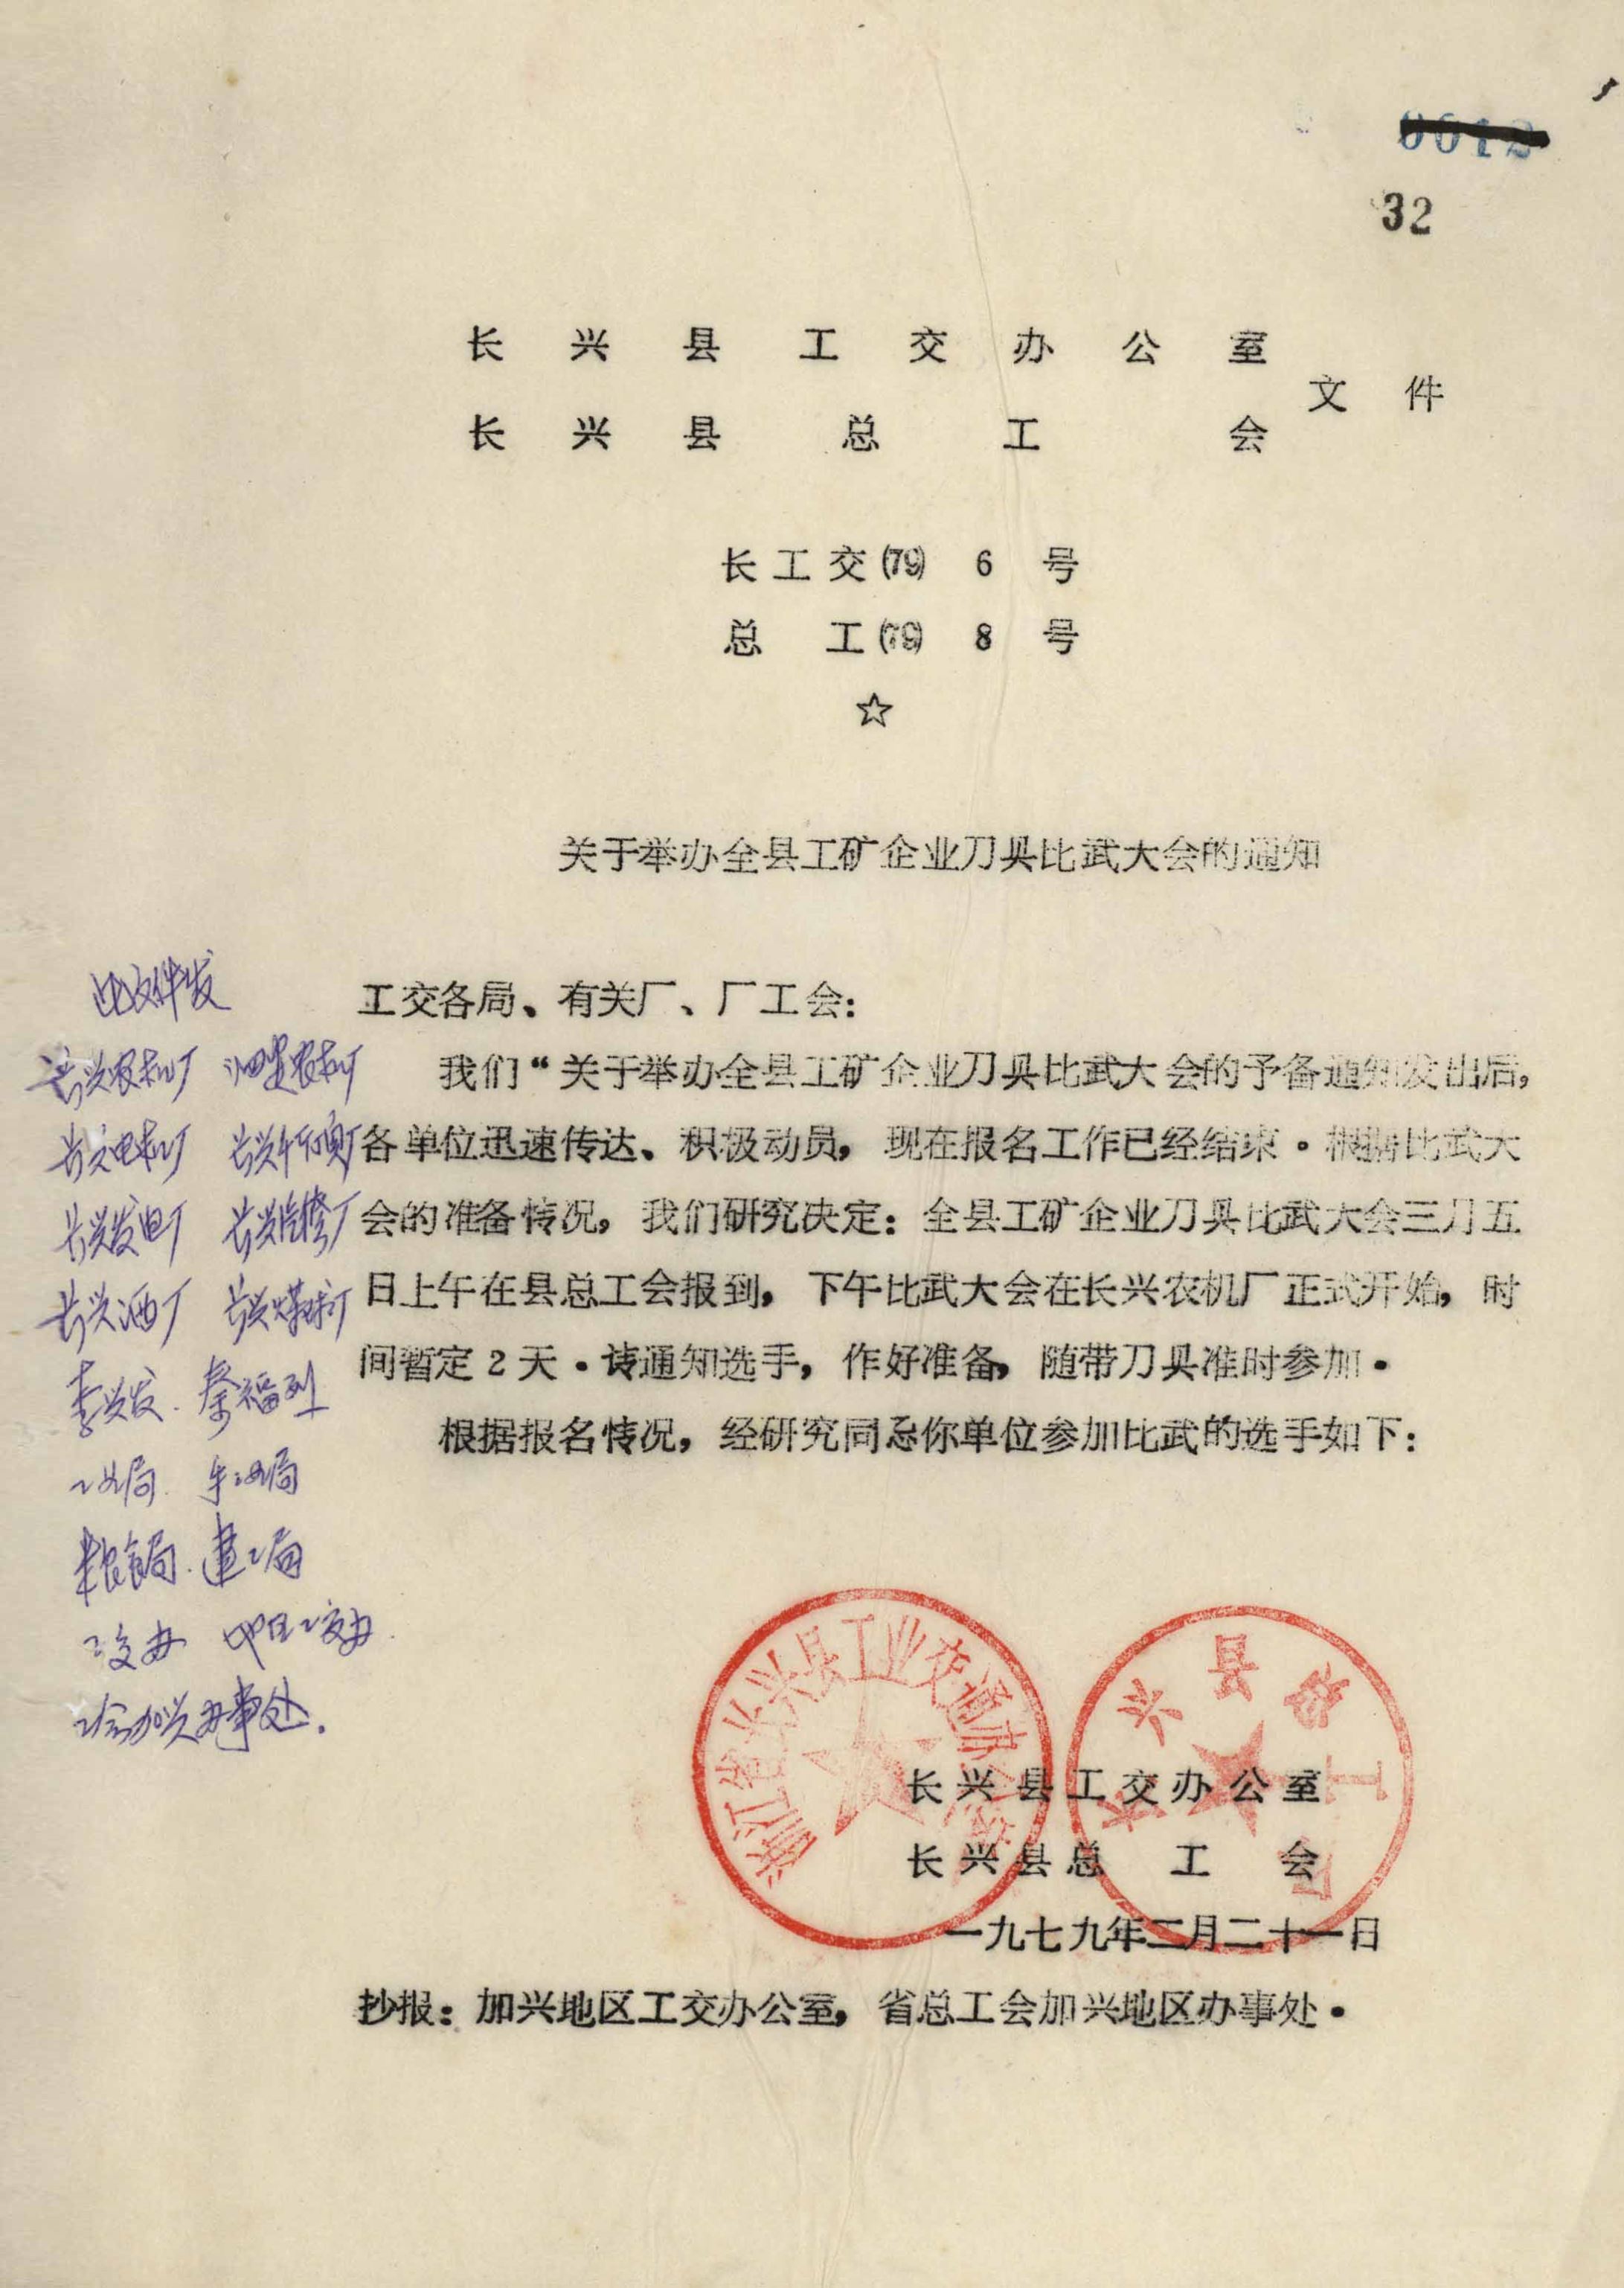 0012
32
长兴县工交办公室
文件
长兴县总工会
长工交(79) 6 号
总工(79) 8 号
☆
关于举办全县工矿企业刀具比武大会的通知
工交各局、有关厂、厂工会：
我们“关于举办全县工矿企业刀具比武大会的予备通知发出后，
各单位迅速传达、积极动员，现在报名工作已经结束．根据比武大
会的准备情况，我们研究决定：全县工矿企业刀具比武大会三月五
日上午在县总工会报到，下午比武大会在长兴农机厂正式开始，时
间暂定2天．请通知选手，作好准备，随带刀具准时参加．
根据报名情况，经研究同意你单位参加比武的选手如下：
此文件发
长兴农机厂
长兴电机厂
长兴发电厂 长兴汽修厂
长兴酒厂
李兴发. 蔡福
粮食局. 建工局
工交办
加兴办事处.
浙江省长兴县工业交通办公室
长兴县总工会
长兴县工交办公室
长兴县总工会
一九七九年二月二十一日
抄报：加兴地区工交办公室，省总工会加兴地区办事处．